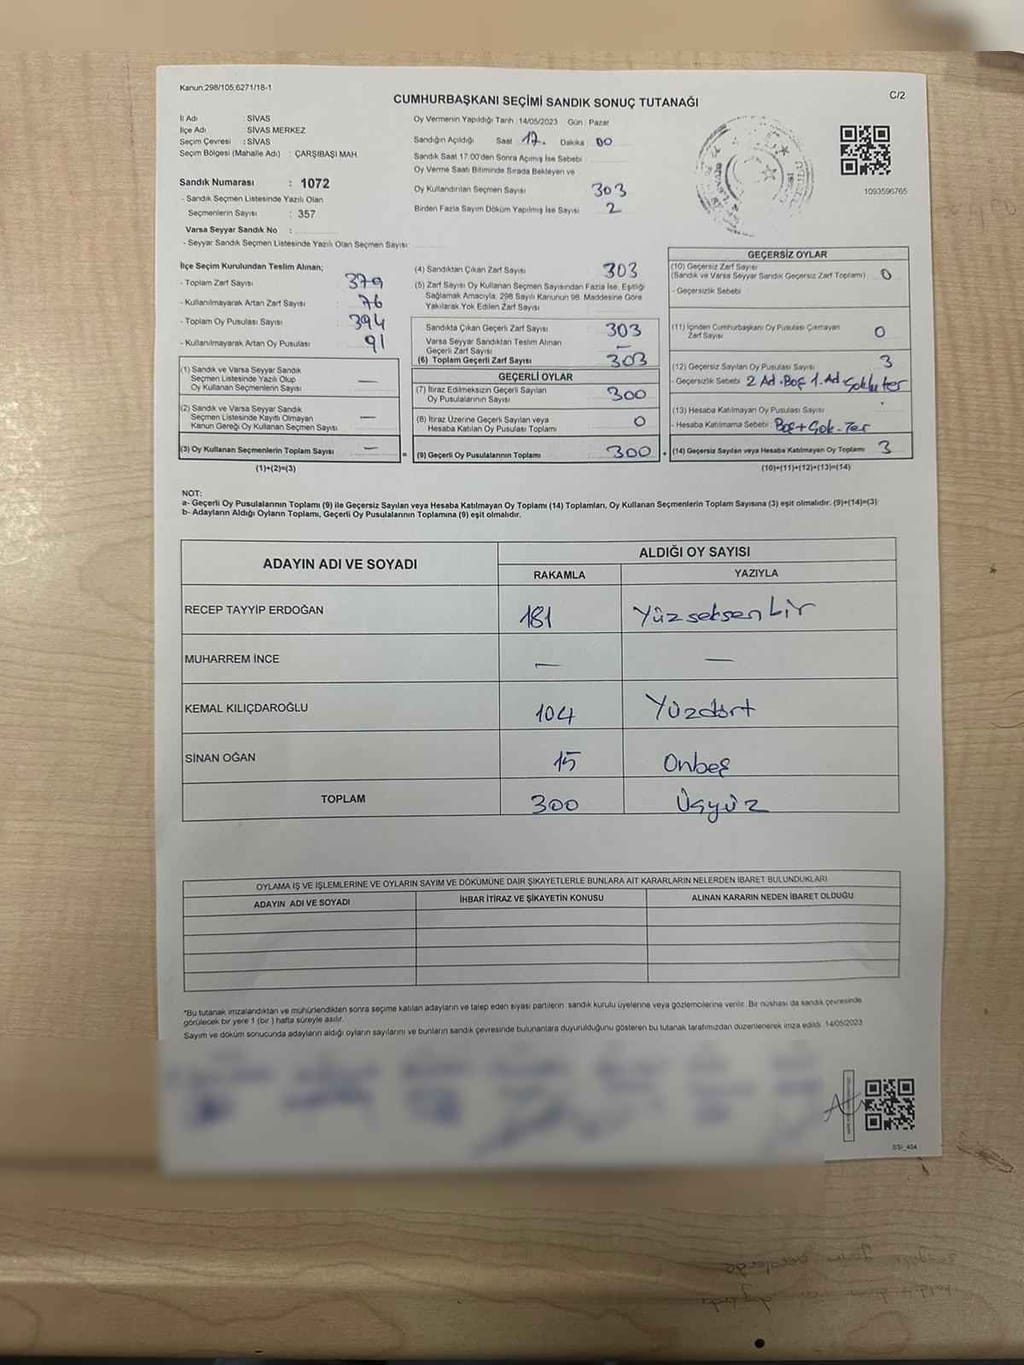 Kanun:298/105;6271/18-1
C/2
CUMHURBAŞKANI SEÇİMİ SANDIK SONUÇ TUTANAĞI
İl Adı : SİVAS
İlçe Adı : SİVAS MERKEZ
Seçim Çevresi : SİVAS
Seçim Bölgesi (Mahalle Adı) : ÇARŞIBAŞI MAH.
Sandık Numarası : 1072
- Sandık Seçmen Listesinde Yazılı Olan
Seçmenlerin Sayısı : 357
Varsa Seyyar Sandık No :
- Seyyar Sandık Seçmen Listesinde Yazılı Olan Seçmen Sayısı:
Oy Vermenin Yapıldığı Tarih : 14/05/2023 Gün : Pazar
Sandığın Açıldığı Saat 17. Dakika 00
Sandık Saat 17:00'den Sonra Açımış İse Sebebi
Oy Verme Saati Bitiminde Sırada Bekleyen ve
Oy Kullandırılan Seçmen Sayısı 303
Birden Fazla Sayım Döküm Yapılmış İse Sayısı 2
1093596765
İlçe Seçim Kurulundan Teslim Alınan;
- Toplam Zarf Sayısı 379
- Kullanılmayarak Artan Zarf Sayısı 76
- Toplam Oy Pusulası Sayısı 394
- Kullanılmayarak Artan Oy Pusulası 91
(1) Sandık ve Varsa Seyyar Sandık
Seçmen Listesinde Yazılı Olup
Oy Kullanan Seçmenlerin Sayısı —
(2) Sandık ve Varsa Seyyar Sandık
Seçmen Listesinde Kayıtlı Olmayan
Kanun Gereği Oy Kullanan Seçmen Sayısı —
(3) Oy Kullanan Seçmenlerin Toplam Sayısı —
(1)+(2)=(3)
(4) Sandıktan Çıkan Zarf Sayısı 303
(5) Zarf Sayısı Oy Kullanan Seçmen Sayısından Fazla İse, Eşitliği
Sağlamak Amacıyla, 298 Sayılı Kanunun 98. Maddesine Göre
Yakılarak Yok Edilen Zarf Sayısı
Sandıkta Çıkan Geçerli Zarf Sayısı 303
Varsa Seyyar Sandıktan Teslim Alınan
Geçerli Zarf Sayısı —
(6) Toplam Geçerli Zarf Sayısı 303
GEÇERLİ OYLAR
(7) İtiraz Edilmeksizin Geçerli Sayılan
Oy Pusulalarının Sayısı 300
(8) İtiraz Üzerine Geçerli Sayılan veya
Hesaba Katılan Oy Pusulası Toplamı 0
= (9) Geçerli Oy Pusulalarının Toplamı 300 +
GEÇERSİZ OYLAR
(10) Geçersiz Zarf Sayısı
(Sandık ve Varsa Seyyar Sandık Geçersiz Zarf Toplamı) 0
- Geçersizlik Sebebi
(11) İçinden Cumhurbaşkanı Oy Pusulası Çıkmayan
Zarf Sayısı 0
(12) Geçersiz Sayılan Oy Pusulası Sayısı 3
- Geçersizlik Sebebi 2 Ad. Boş 1. Ad
(13) Hesaba Katılmayan Oy Pusulası Sayısı
- Hesaba Katılmama Sebebi Boş+Çok-Ter
(14) Geçersiz Sayılan veya Hesaba Katılmayan Oy Toplamı 3
(10)+(11)+(12)+(13)=(14)
NOT:
a- Geçerli Oy Pusulalarının Toplamı (9) ile Geçersiz Sayılan veya Hesaba Katılmayan Oy Toplamı (14) Toplamları, Oy Kullanan Seçmenlerin Toplam Sayısına (3) eşit olmalıdır. (9)+(14)=(3)
b- Adayların Aldığı Oyların Toplamı, Geçerli Oy Pusulalarının Toplamına (9) eşit olmalıdır.
ADAYIN ADI VE SOYADI
ALDIĞI OY SAYISI
RAKAMLA YAZIYLA
RECEP TAYYİP ERDOĞAN 181 Yüzseksenbir
MUHARREM İNCE — —
KEMAL KILIÇDAROĞLU 104 Yüzdört
SİNAN OĞAN 15 Onbeş
TOPLAM 300 Üçyüz
OYLAMA İŞ VE İŞLEMLERİNE VE OYLARIN SAYIM VE DÖKÜMÜNE DAİR ŞİKAYETLERLE BUNLARA AİT KARARLARIN NELERDEN İBARET BULUNDUKLARI
ADAYIN ADI VE SOYADI İHBAR İTİRAZ VE ŞİKAYETİN KONUSU ALINAN KARARIN NEDEN İBARET OLDUĞU
"Bu tutanak imzalandıktan ve mühürlendikten sonra seçime katılan adayların ve talep eden siyasi partilerin sandık kurulu üyelerine veya gözlemcilerine verilir. Bir nüshası da sandık çevresinde
görülecek bir yere 1 (bir) hafta süreyle asılır.
Sayım ve döküm sonucunda adayların aldığı oyların sayılarını ve bunların sandık çevresinde bulunanlara duyurulduğunu gösteren bu tutanak tarafımızdan düzenlenerek imza edildi. 14/05/2023